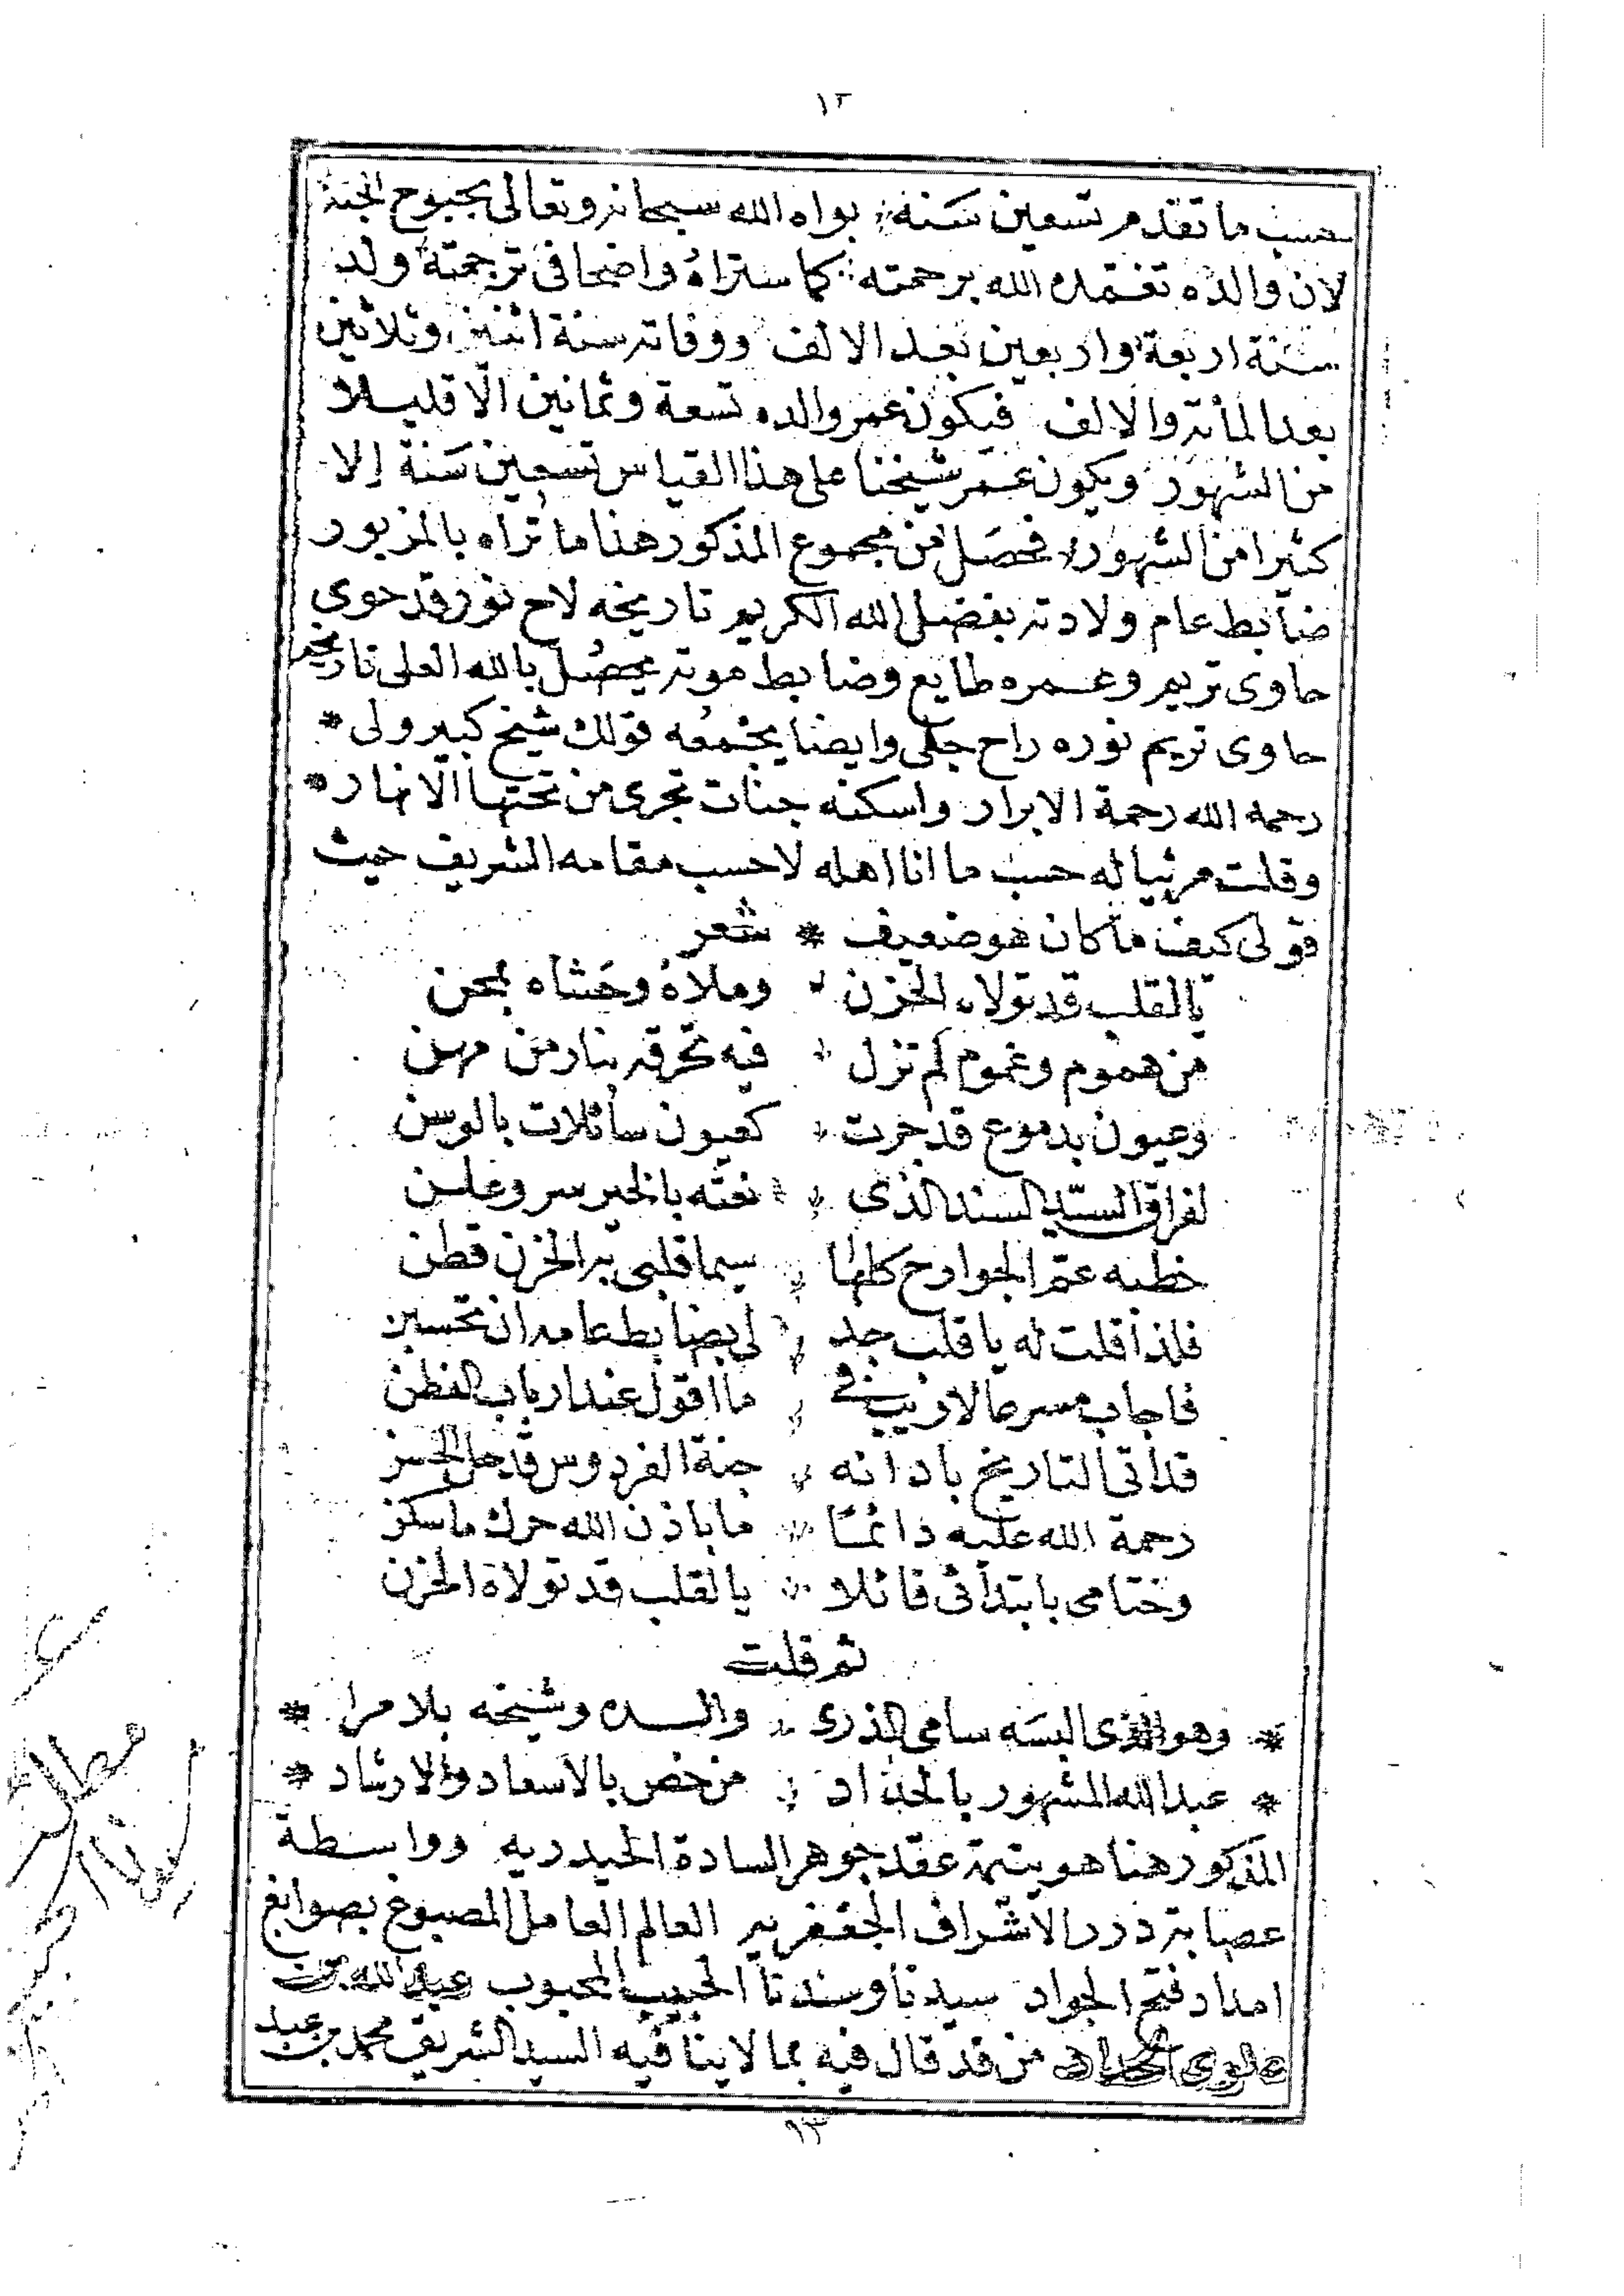 ١٢
حسب ما تقدم تسعين سنة بواه الله سبحانه وتعالى بحبوح الجنة
لان والده تغمده الله برحمته كما ستراه واضحا في ترجمته ولد
سنة اربعة واربعين بعد الالف ووفاته سنة اثنين وثلاثين
بعد المائة والالف فيكون عمر والده تسعة وثمانين الا قليلا
من الشهور ويكون عمر شيخنا على هذا القياس تسعين سنة إلا
كثيرا من الشهور فحصل من مجموع المذكور هنا ما تراه بالمزبور
ضابط عام ولادته بفضل الله الكريم تاريخه لاح نور قد حوى
حاوى تريم وعمره طايع وضابط موته يحصل بالله العلى تاريخه
حاوى تريم نوره راح جلى وايضا يجمعه قولك شيخ كبير ولى *
رحمه الله رحمة الابرار واسكنه جنات تجرى من تحتها الانهار *
وقلت مرثيا له حسب ما انا اهله لا حسب مقامه الشريف حيث
قولى كيف ما كان هو ضعيف * شعر
يالقلب قد تولاه الحزن * وملاه وحشاه بمحن
من هموم وغموم لم تزل * فيه تحرقه بنار من مهن
وعيون بدموع قد جرت * كعيون سائلات بالوسن
لفراق السيد السند الذى * نعته بالخير سر وعلن
خطبه عم الجوارح كلها * سيما قلبى به الحزن قطن
فلذا قلت له يا قلب جد * لى بضابط عامه ان تحسن
فاجاب مسرعا لا ريب في * ما اقول عند ارباب الفطن
قد اتى التاريخ باد انه * جنة الفردوس قد حل الحسن
رحمة الله عليه دائما * ما باذن الله حرك ما سكن
وختامى بابتدائى قائلا * يالقلب قد تولاه الحزن
ثم قلت
* وهو الذى البسه سامى الذرى * والده وشيخه بلا مرا *
* عبد الله المشهور بالحداد * من خص بالاسعاد والارشاد *
المذكور هنا هو يتيمة عقد جوهر السادة الحيدريه وواسطة
عصابة درر الاشراف الجعفريه العالم العامل المصبوغ بصوابغ
امداد فتح الجواد سيدنا وسندنا الحبيب المحبوب عبد الله بن
علوى الحداد من قد قال فيه بما لا ينافيه السيد الشريف محمد بن عبد
١٣